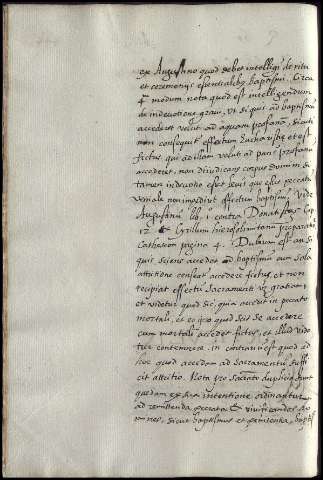 ex Augustino quod debet intelligi de ritu
et ceremoniis essentialibus baptismi. Circa
4 modum nota quod est intelligendum
de indevotione gravi, ut si quis ad baptismum
accederet velut ad aquam profanam, sicuti
non consequit effectum Eucharistiæ et est
fictus, qui ad illam velut ad panem profanum
accederet, non diiudicans corpus domini si
tamen indevotio esset levis que esset peccatum
veniale non impediret effectum baptismi. Vide
Augustinum lib. 1 contra Donatistas Cap
12 & Cyrillum hierosolimitanum præparatio
Cathecesim pagina 4. Dubium est an si
quis sciens accedat ad baptismum cum sola
attritione censeat accedere fictus, et non
recipiat effectum Sacramenti gratiam
et videtur quod sic, quia accedit in peccato
mortali, et eo ipso quod scit se accedere
cum mortali accedit fictus, et illud vide
tur contemnere. in contrarium est quod ad
hoc quod accedam ad Sacramentum suffi
cit attritio. Nota pro Sacramento duplicia sunt
quedam ex sua intentione ordinantur
ad remittenda peccata & vivificandos ho
mines, sicut baptismus et penitentia, baptis